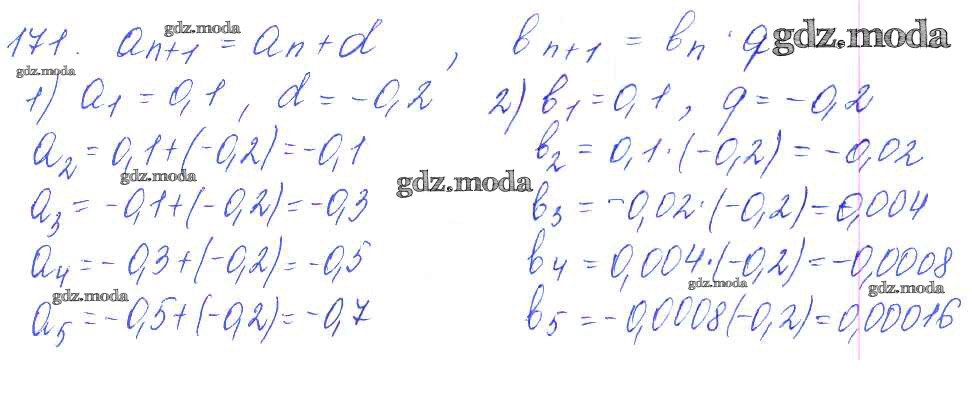 171. aₙ₊₁ = aₙ + d , bₙ₊₁ = bₙ · q
1) a₁ = 0,1 , d = -0,2 2) b₁ = 0,1 , q = -0,2
a₂ = 0,1 + (-0,2) = -0,1 b₂ = 0,1 · (-0,2) = -0,02
a₃ = -0,1 + (-0,2) = -0,3 b₃ = -0,02 · (-0,2) = 0,004
a₄ = -0,3 + (-0,2) = -0,5 b₄ = 0,004 · (-0,2) = -0,0008
a₅ = -0,5 + (-0,2) = -0,7 b₅ = -0,0008(-0,2) = 0,00016
gdz.moda
gdz.moda
gdz.moda
gdz.moda
gdz.moda
gdz.moda
gdz.moda
gdz.moda